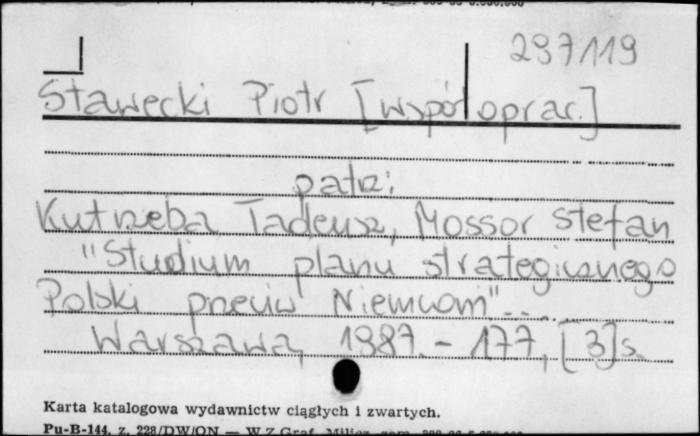 297119
Stawecki Piotr [współoprac.]
patrz:
Kutrzeba Tadeusz, Mossor Stefan
"Studium planu strategicznego
Polski przeciw Niemcom"...
Warszawa, 1987. - 177, [3]s.
Karta katalogowa wydawnictw ciągłych i zwartych.
Pu-B-144, z. 228/DW/ON — W.Z.Graf.